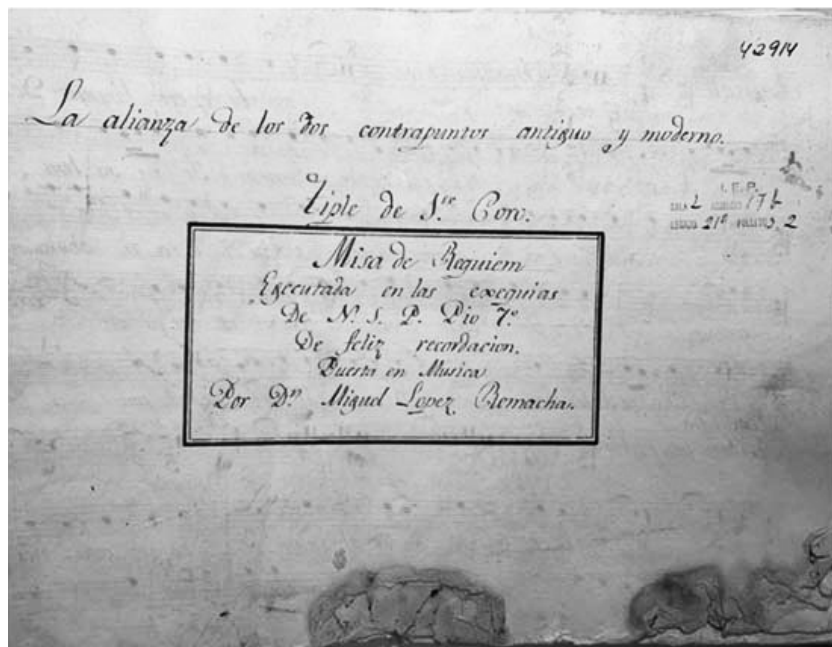 42914
La alianza de los dos contrapuntos antiguo y moderno.
Tiple de 1.re Coro.
I. E. P.
SALA L 176
21ª 2
Misa de Requiem
Executada en las exequias
De N. S. P. Pio 7.º
De feliz recordacion.
Puesta en Musica
Por Dn. Miguel Lopez Remacha.